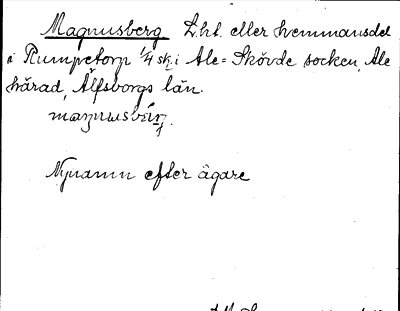 Magnusberg Lht. eller hemmansdel
i Rumpetorp 1/4 sk. i Ale-Skövde socken, Ale
härad, Älfsborgs län.
Nynamn efter ägare